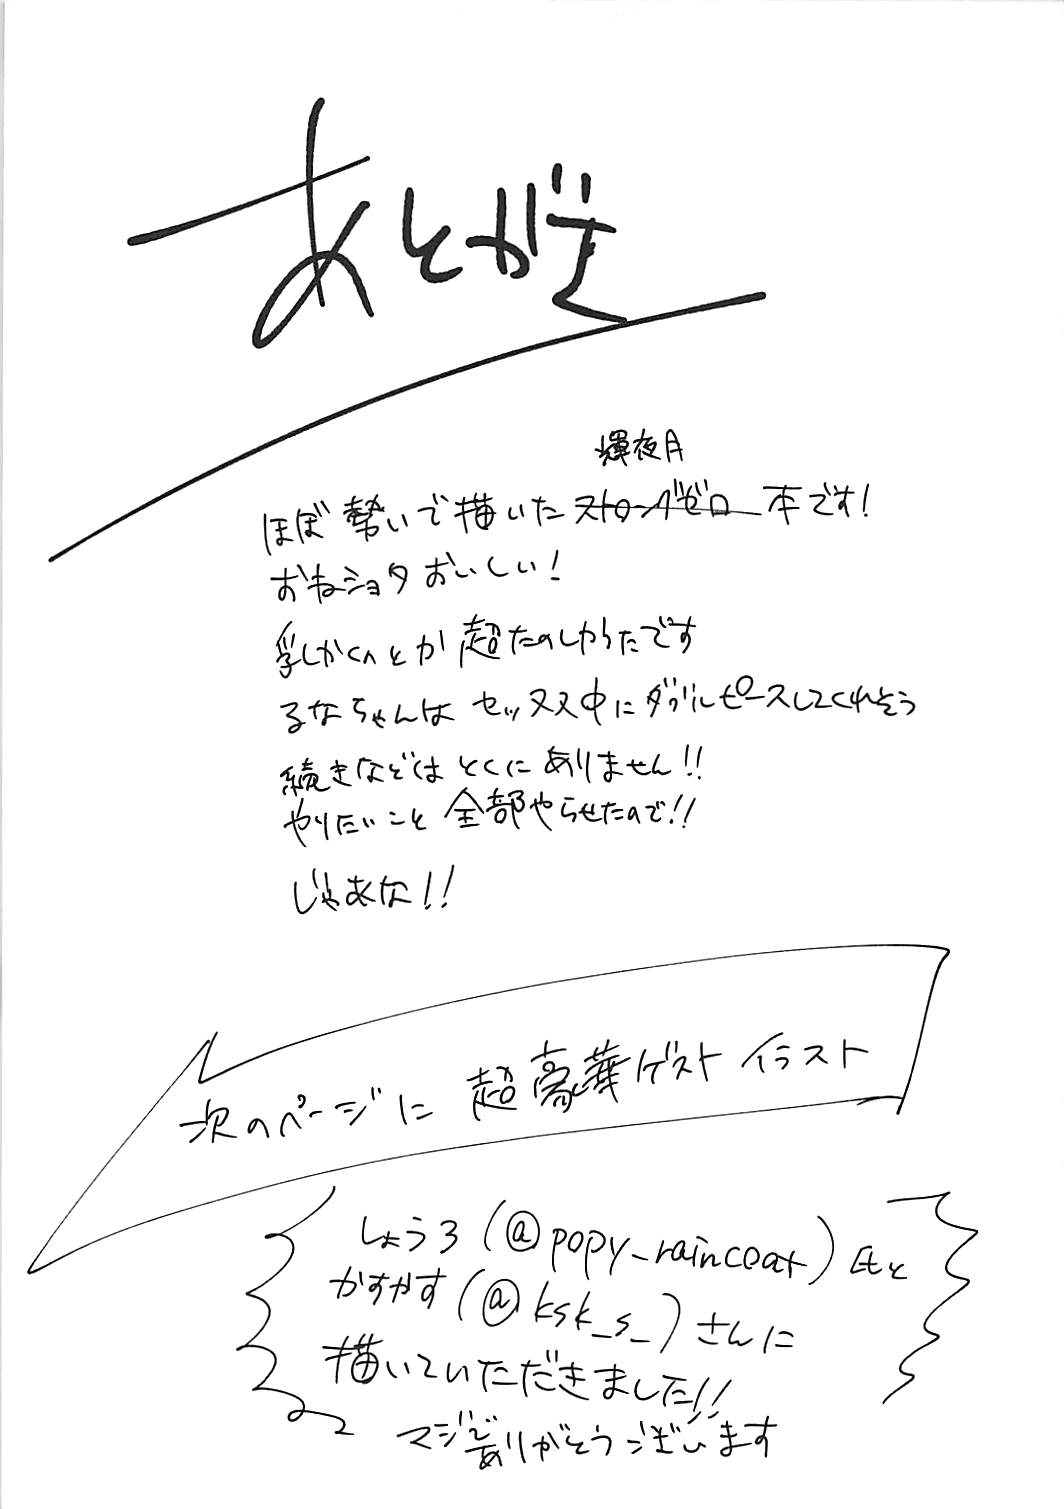 あとがき
輝夜月
ほぼ勢いで描いたストロングゼロ本です!
おねショタおいしい!
とか超たのしかったです
るなちゃんはセックス中にダブルピースしてくれそう
続きなどはとくにありません!!
やりたいこと全部やらせたので!!
じゃあな!!
次のページに超豪華ゲストイラスト
しょうろ(@popy_raincoat)氏と
かすかす(@ksk_s_)さんに
描いていただきました!!
マジでありがとうございます